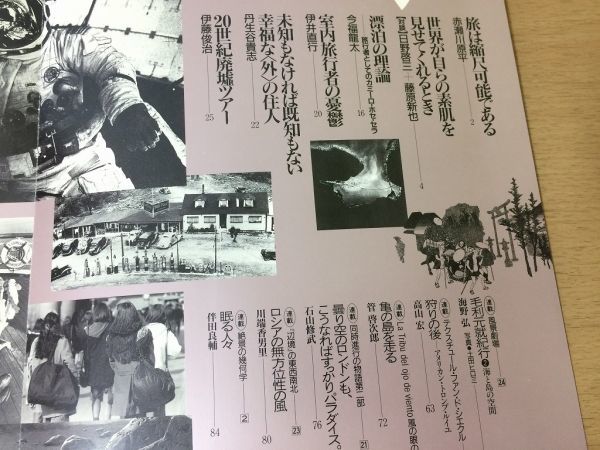 旅は縮尺可能である
赤瀬川原平
2
世界が自らの素肌を
見せてくれるとき
[対談]日野啓三―藤原新也
4
漂泊の理論
旅行者としてのカミーロ・ホセ・セラ
今福龍太
16
室内旅行者の憂鬱
伊井直行
20
未知もなければ既知もない
幸福な〈外〉の住人
丹生谷貴志
22
20世紀廃墟ツアー
伊藤俊治
25
連載 風景劇場 24
毛利元就紀行 2 海と島の空間
海野 弘 写真●土田ヒロミ
連載 テクスチュール・ファンド・シエクル
狩りの後 アメリカン・トロンプ・ルイユ
高山 宏
63
連載 La Tribu del ojo de viento 風の眼の
亀の島を走る
管 啓次郎
72
連載 同時進行の物語第二部 21
曇り空のロンドンも、
こうなればすっかりパラダイス。
石山修武
76
連載 「辺境」の東西南北 23
ロシアの無方位性の風
川端香男里
80
連載 絶景の幾何学 2
眠る人々
伴田良輔
84